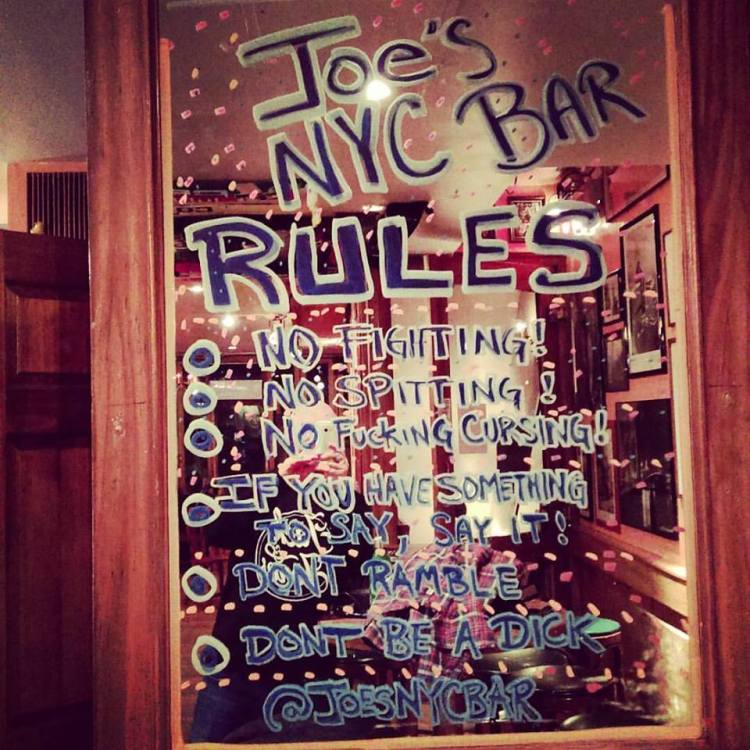 JOE'S
NYC BAR
RULES
NO FIGHTING!
NO SPITTING!
NO FUCKING CURSING!
IF YOU HAVE SOMETHING
TO SAY, SAY IT!
DON'T RAMBLE
DONT BE A DICK
@JOESNYCBAR